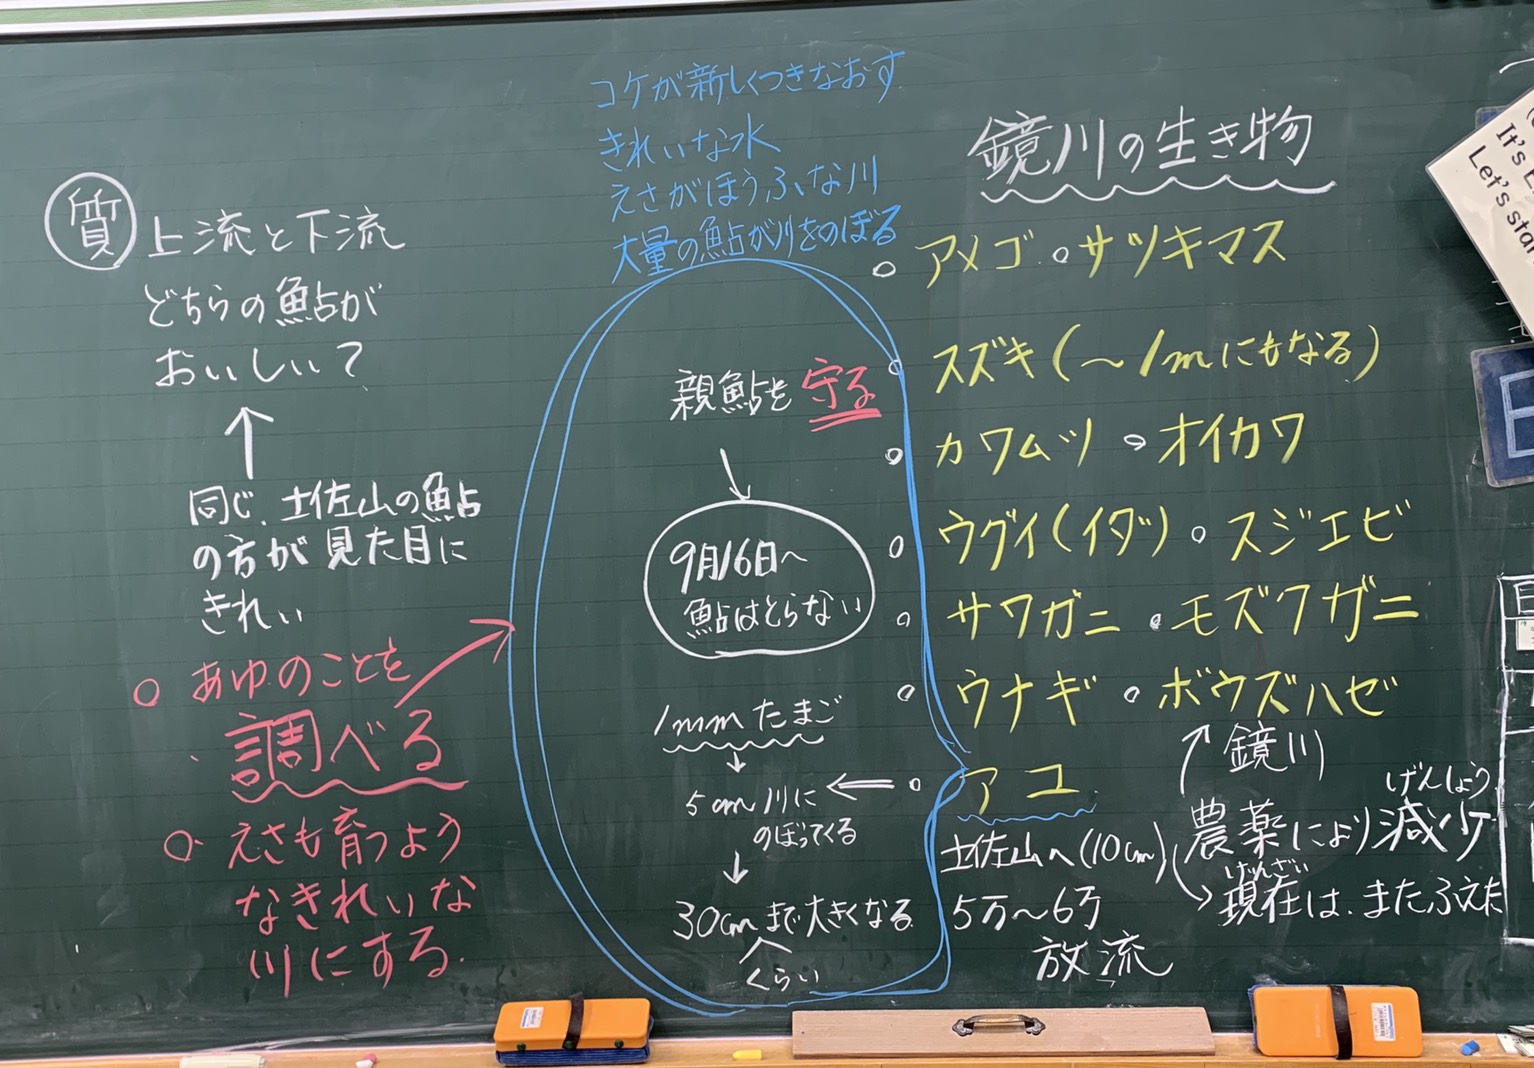 質 上流と下流
どちらの鮎が
おいしい?
↑
同じ、土佐山の鮎
の方が見た目に
きれい
○ あゆのことを
調べる
○ えさも育つよう
なきれいな
川にする。
コケが新しくつきなおす
きれいな水
えさがほうふな川
大量の鮎が川をのぼる
親鮎を守る
↓
9月16日〜
鮎はとらない
1mmたまご
↓
5cm川に
のぼってくる
↓
30cmまで大きくなる
くらい
鏡川の生き物
○ アメゴ ○サツキマス
○ スズキ(〜1mにもなる)
○ カワムツ ○オイカワ
○ ウグイ(イダ) ○スジエビ
○ サワガニ ○モズクガニ
○ ウナギ ○ボウズハゼ
← ○ アユ
土佐山へ(10cm)
5万〜6万
放流
↑鏡川
げんしょう
農薬により減少
げんざい
→現在は、またふえた
It's
Let's star